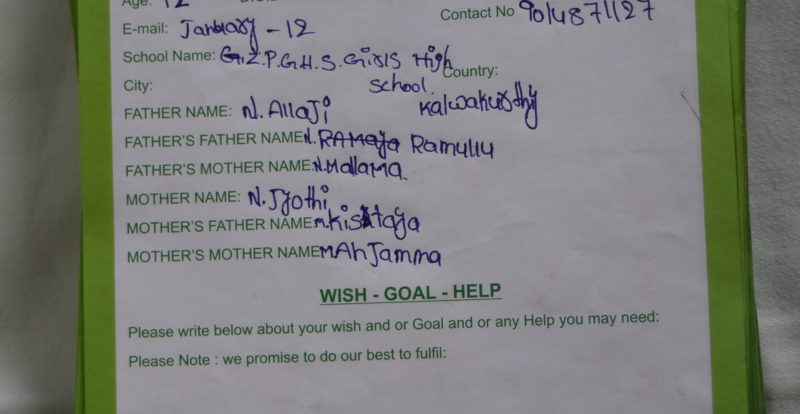 Age: 12
Contact No 9014871127
E-mail: January - 12
School Name: G.Z.P.G.H.S. Girls High
City: School. Country:
FATHER NAME: N. Allaji Kalwakurthy
FATHER'S FATHER NAME N. Ramulu
FATHER'S MOTHER NAME: N. Mallama.
MOTHER NAME: N. Jyothi
MOTHER'S FATHER NAME M. Kistaya
MOTHER'S MOTHER NAME M Ahjamma
WISH - GOAL - HELP
Please write below about your wish and or Goal and or any Help you may need:
Please Note : we promise to do our best to fulfil: